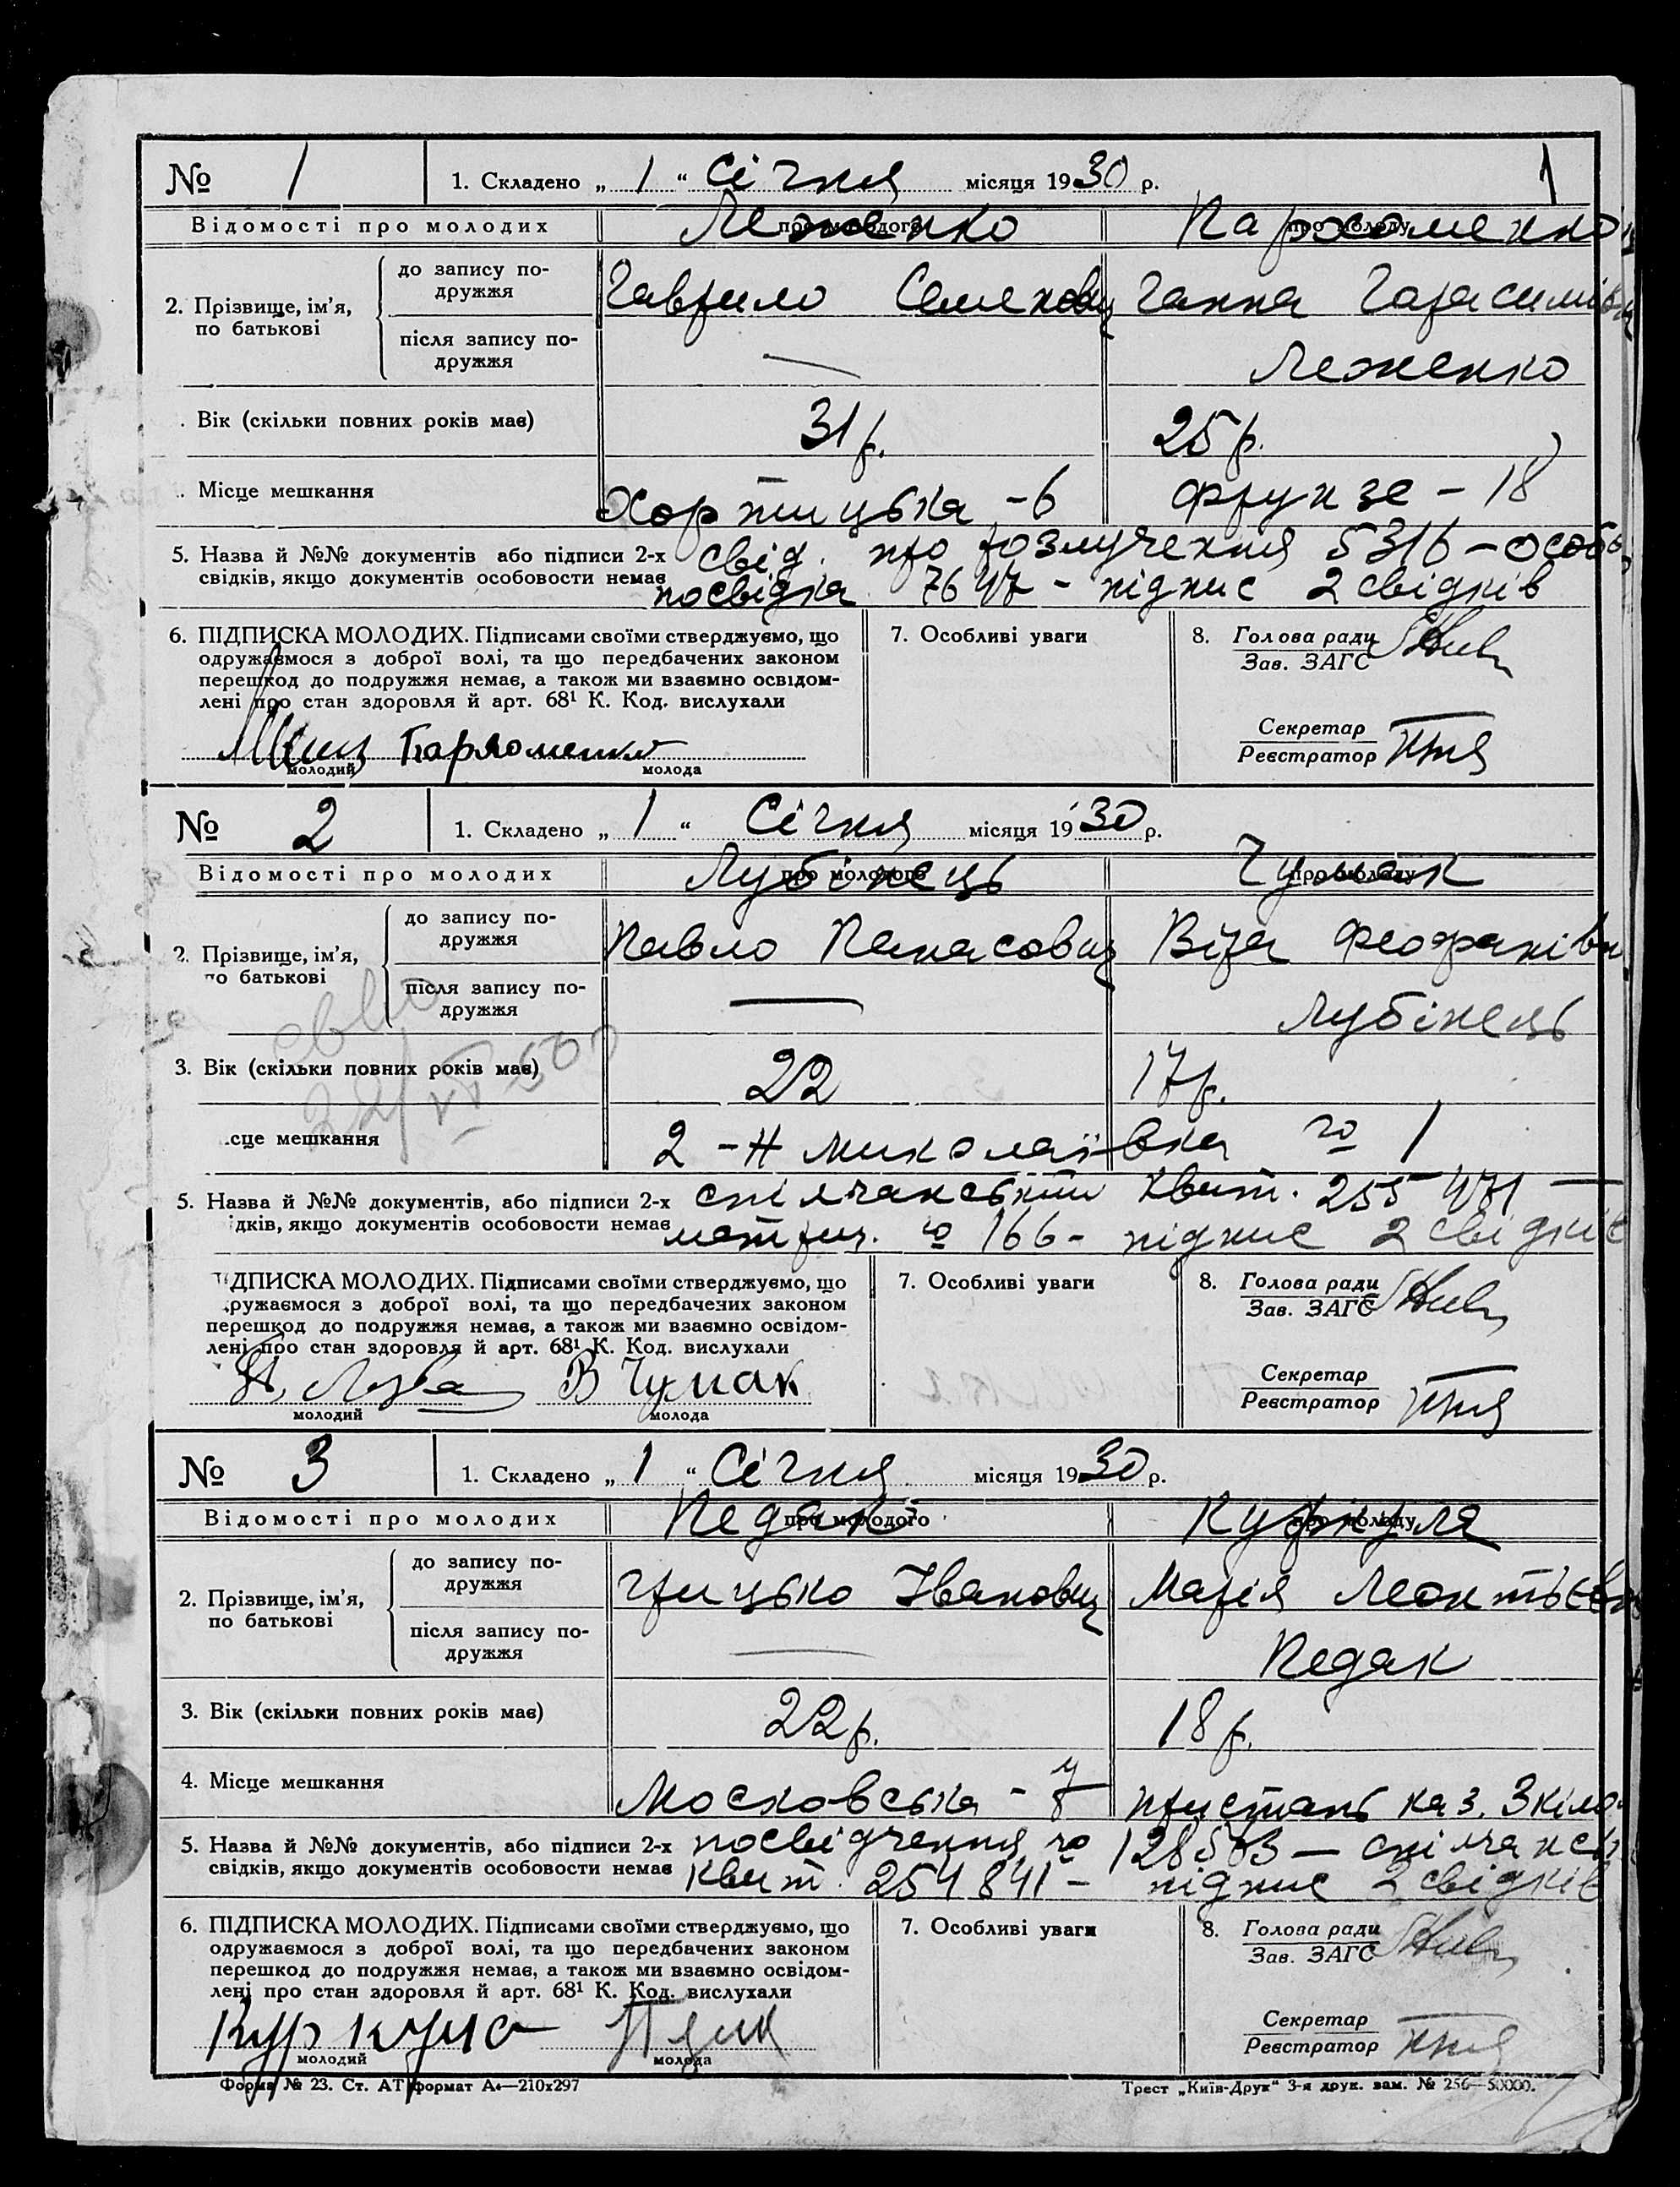 № 1 1. Складено „ 1 “ Січня місяця 1930 р. 1
Відомості про молодих про молодого Леженко про молоду Пархоменко
2. Прізвище, ім’я, по батькові
до запису подружжя Гаврило Семенович Ганна Гарасимівна
після запису подружжя — Леженко
Вік (скільки повних років має) 31 р. 25 р.
Місце мешкання Хортицька - 6 Фрунзе - 18
5. Назва й №№ документів або підписи 2-х свід. про розлучення 5316 – особ
свідків, якщо документів особовости немає посвідка 7647 - підпис 2 свідків
6. ПІДПИСКА МОЛОДИХ. Підписами своїми стверджуємо, що 7. Особливі уваги 8. Голова ради
одружаємося з доброї волі, та що передбачених законом Зав. ЗАГС
перешкод до подружжя немає, а також ми взаємно освідом-
лені про стан здоровля й арт. 68¹ К. Код. вислухали
Секретар
Пархоменко Реєстратор
молодий молода
№ 2 1. Складено „ 1 “ Січня місяця 1930 р.
Відомості про молодих про молодого Лубінець про молоду Чумак
2. Прізвище, ім’я, по батькові
до запису подружжя Павло Панасович Віра Феофанівна
після запису подружжя — Лубінець
3. Вік (скільки повних років має) 22 17 р.
сце мешкання 2 - Н Миколаївка № 1
5. Назва й №№ документів, або підписи 2-х спілчанський квит. 255471 —
ідків, якщо документів особовости немає метрич. № 166 - підпис 2 свідків
ІДПИСКА МОЛОДИХ. Підписами своїми стверджуємо, що 7. Особливі уваги 8. Голова ради
ружаємося з доброї волі, та що передбачених законом Зав. ЗАГС
перешкод до подружжя немає, а також ми взаємно освідом-
лені про стан здоровля й арт. 68¹ К. Код. вислухали
Секретар
В Чумак Реєстратор
молодий молода
№ 3 1. Складено „ 1 “ Січня місяця 1930 р.
Відомості про молодих про молодого Педак про молоду Куркуля
2. Прізвище, ім’я, по батькові
до запису подружжя Грицько Іванович Марія Леонтьєвна
після запису подружжя — Педак
3. Вік (скільки повних років має) 22 р. 18 р.
4. Місце мешкання Московська - пристань каз. 3 кіло
5. Назва й №№ документів, або підписи 2-х посвідчення № 128583 – спілчанськ
свідків, якщо документів особовости немає квит. 254841 - підпис 2 свідків
6. ПІДПИСКА МОЛОДИХ. Підписами своїми стверджуємо, що 7. Особливі уваги 8. Голова ради
одружаємося з доброї волі, та що передбачених законом Зав. ЗАГС
перешкод до подружжя немає, а також ми взаємно освідом-
лені про стан здоровля й арт. 68¹ К. Код. вислухали
Секретар
Реєстратор
молодий молода
Форма № 23. Ст. АТ формат А₄—210х297 Трест „Київ-Друк“ 3-я друк. зам. № 256—50000.